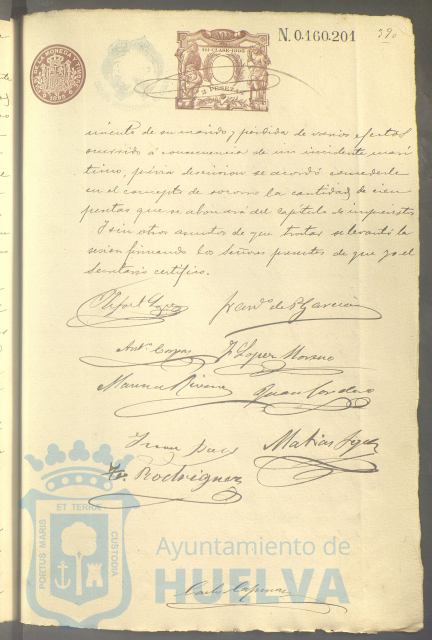 N.0.160.201
390
11ª CLASE-1895
2 PESETAS
de su marido y pérdida de varios efectos
ocurrido á consecuencia de un incidente marí
timo, previa discusion se acordó concederle
en el concepto de socorro la cantidad de cien
pesetas que se abonará del capítulo de imprevistos
Y sin otros asuntos de que tratar se levantó la
sesion firmando los Señores presentes de que yo el
Secretario certifico.
Rafael Lopez
Franco. de P. Garcia
Anto. Corpas
J. Lopez Moreno
Juan Cordero
Juan
Matias
Fo. Rodriguez
ET TERRA
PORTUS MARIS
CUSTODIA
Ayuntamiento de
HUELVA